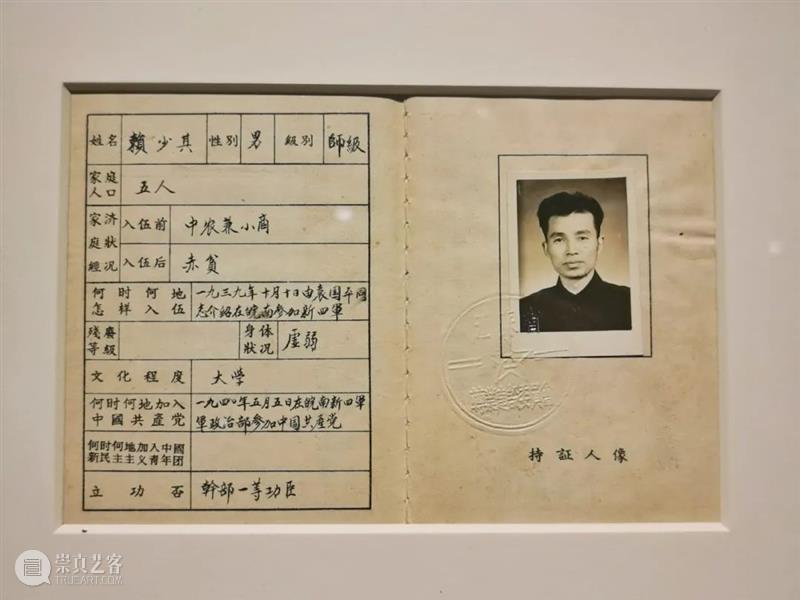 姓名 賴少其 性别 男 級别 師級
家庭人口 五人
家庭經济狀况 入伍前 中农兼小商
入伍后 赤貧
何时何地 一九三九年十月十日由袁国平同
怎样入伍 志介紹在皖南參加新四軍
殘廢等級 身体狀况 虛弱
文化程度 大学
何时何地加入 一九四〇年五月五日在皖南新四軍
中國共產党 軍政治部參加中国共產党
何时何地加入中國
新民主主义青年团
立功否 幹部一等功臣
持証人像
崇真艺客
TRUEART.COM